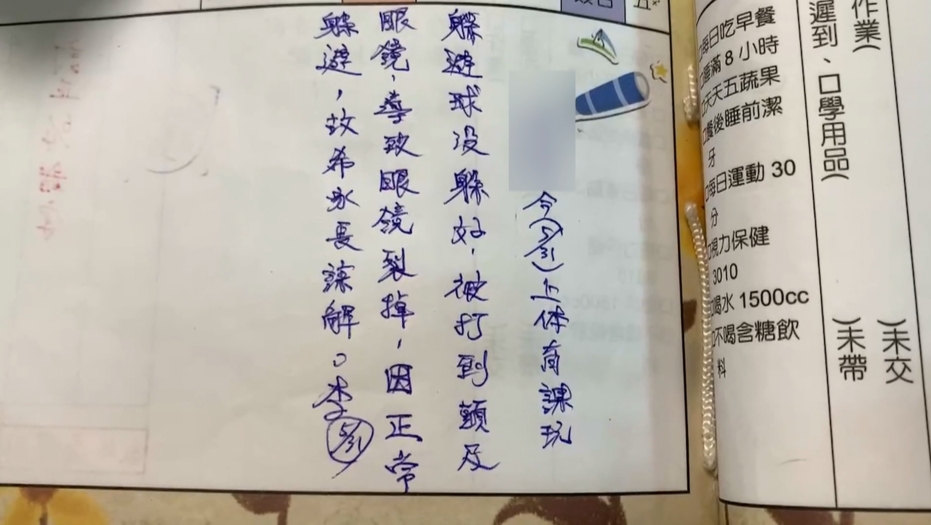 作業(　)未交
遲到、□學用品(　)未帶
□每日吃早餐
□睡滿 8 小時
□天天五蔬果
□餐後睡前潔
牙
□每日運動 30
分
□視力保健
3010
□喝水 1500cc
□不喝含糖飲
料
今(5/31)上体育課玩
躲避球没躲好,被打到頭及
眼鏡,導致眼鏡裂掉,因正常
躲避,故希家長諒解。李 5/31